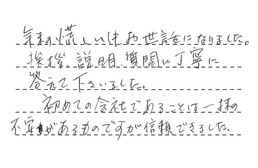 年末の慌しい中お世話になりました。
挨拶、説明、質問に丁寧に
答えて下さいました。
初めての会社であることは一抹の
不安があるものですが信頼できました。